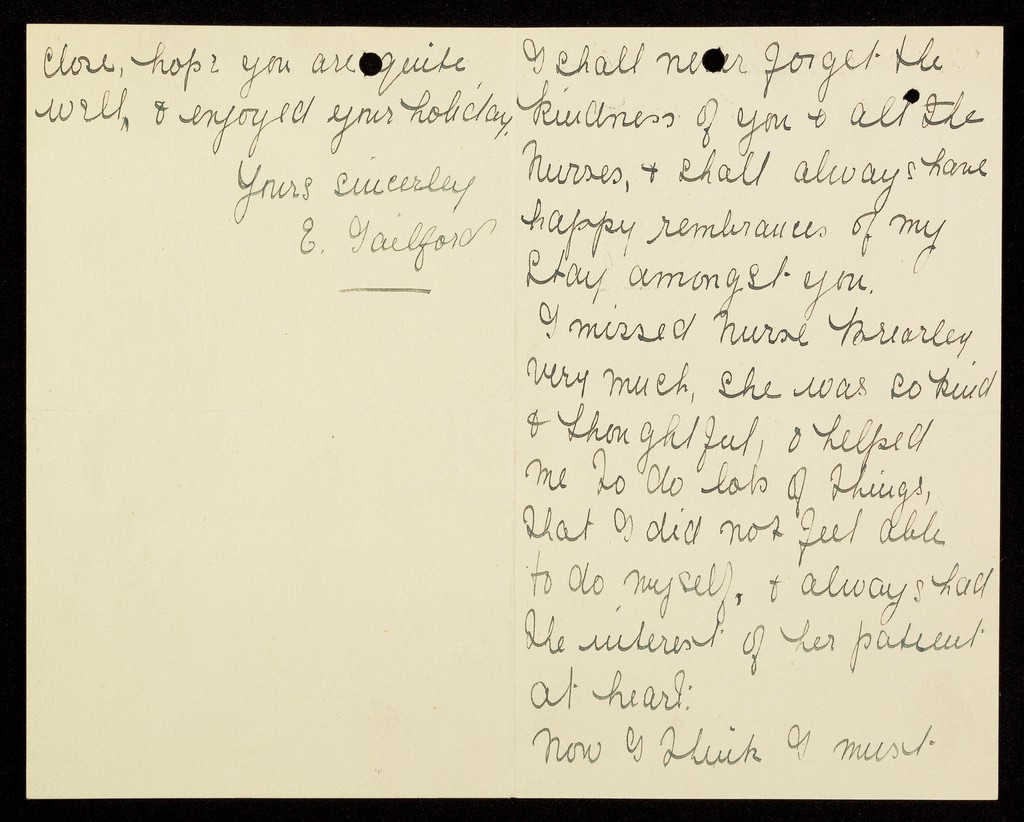 I shall never forget the
kindness of you & all the
Nurses, & shall always have
happy rembrances of my
stay amongst you.
I missed Nurse Brearley
very much, she was so kind
& thoughtful, & helped
me to do lots of things,
that I did not feel able
to do myself, & always had
the interest of her patient
at heart.
Now I think I must
close, hope you are quite
well, & enjoyed your holiday,
Yours sincerley
E. Gailford